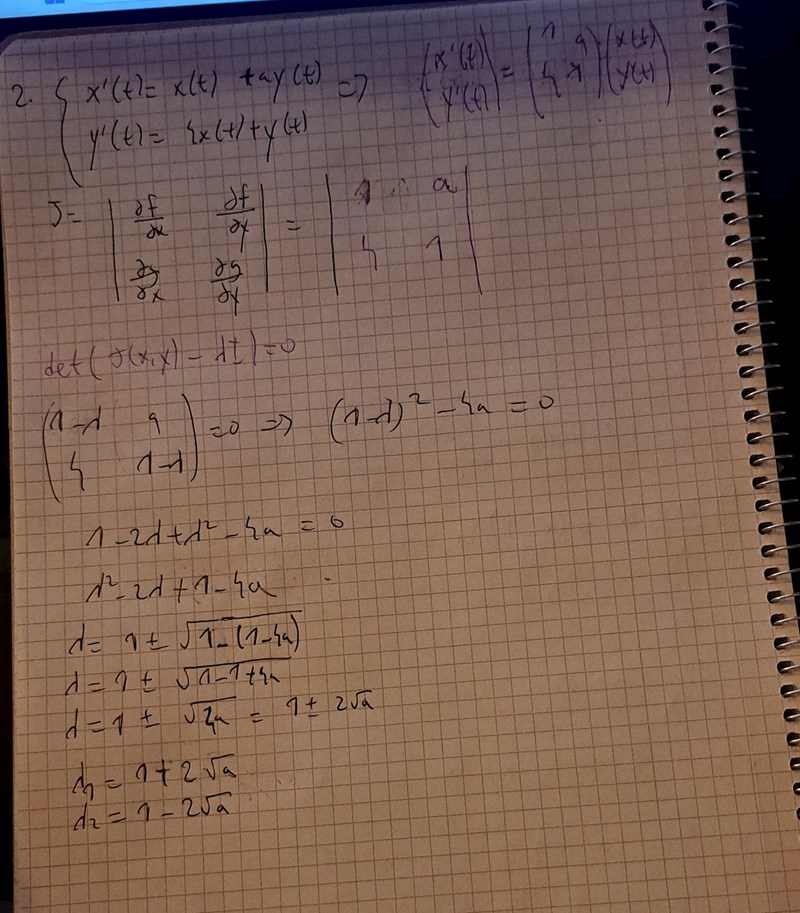 2. { x'(t) = x(t) + ay(t) => (x'(t) y'(t)) = (1 a 4 1)(x(t) y(t))
y'(t) = 4x(t) + y(t)
J = | ∂f/∂x ∂f/∂y | = | 1 a |
| ∂g/∂x ∂g/∂y | | 4 1 |
det(J(x,y) - λI) = 0
(1-λ a 4 1-λ) = 0 => (1-λ)² - 4a = 0
1 - 2λ + λ² - 4a = 0
λ² - 2λ + 1 - 4a
λ = 1 ± √(1 - (1-4a))
λ = 1 ± √(1 - 1 + 4a)
λ = 1 ± √4a = 1 ± 2√a
λ1 = 1 + 2√a
λ2 = 1 - 2√a